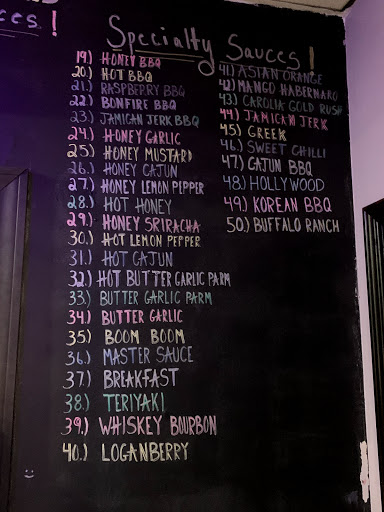 ces!
Specialty Sauces!
19.) HONEY BBQ
20.) HOT BBQ
21.) RASPBERRY BBQ
22.) BONFIRE BBQ
23.) JAMICAN JERK BBQ
24.) HONEY GARLIC
25.) HONEY MUSTARD
26.) HONEY CAJUN
27.) HONEY LEMON PEPPER
28.) HOT HONEY
29.) HONEY SRIRACHA
30.) HOT LEMON PEPPER
31.) HOT CAJUN
32.) HOT BUTTER GARLIC PARM
33.) BUTTER GARLIC PARM
34.) BUTTER GARLIC
35.) BOOM BOOM
36.) MASTER SAUCE
37.) BREAKFAST
38.) TERIYAKI
39.) WHISKEY BOURBON
40.) LOGANBERRY
41.) ASIAN ORANGE
42.) MANGO HABERNARO
43.) CAROLIA GOLD RUSH
44.) JAMICAN JERK
45.) GREEK
46.) SWEET CHILLI
47.) CAJUN BBQ
48.) HOLLYWOOD
49.) KOREAN BBQ
50.) BUFFALO RANCH